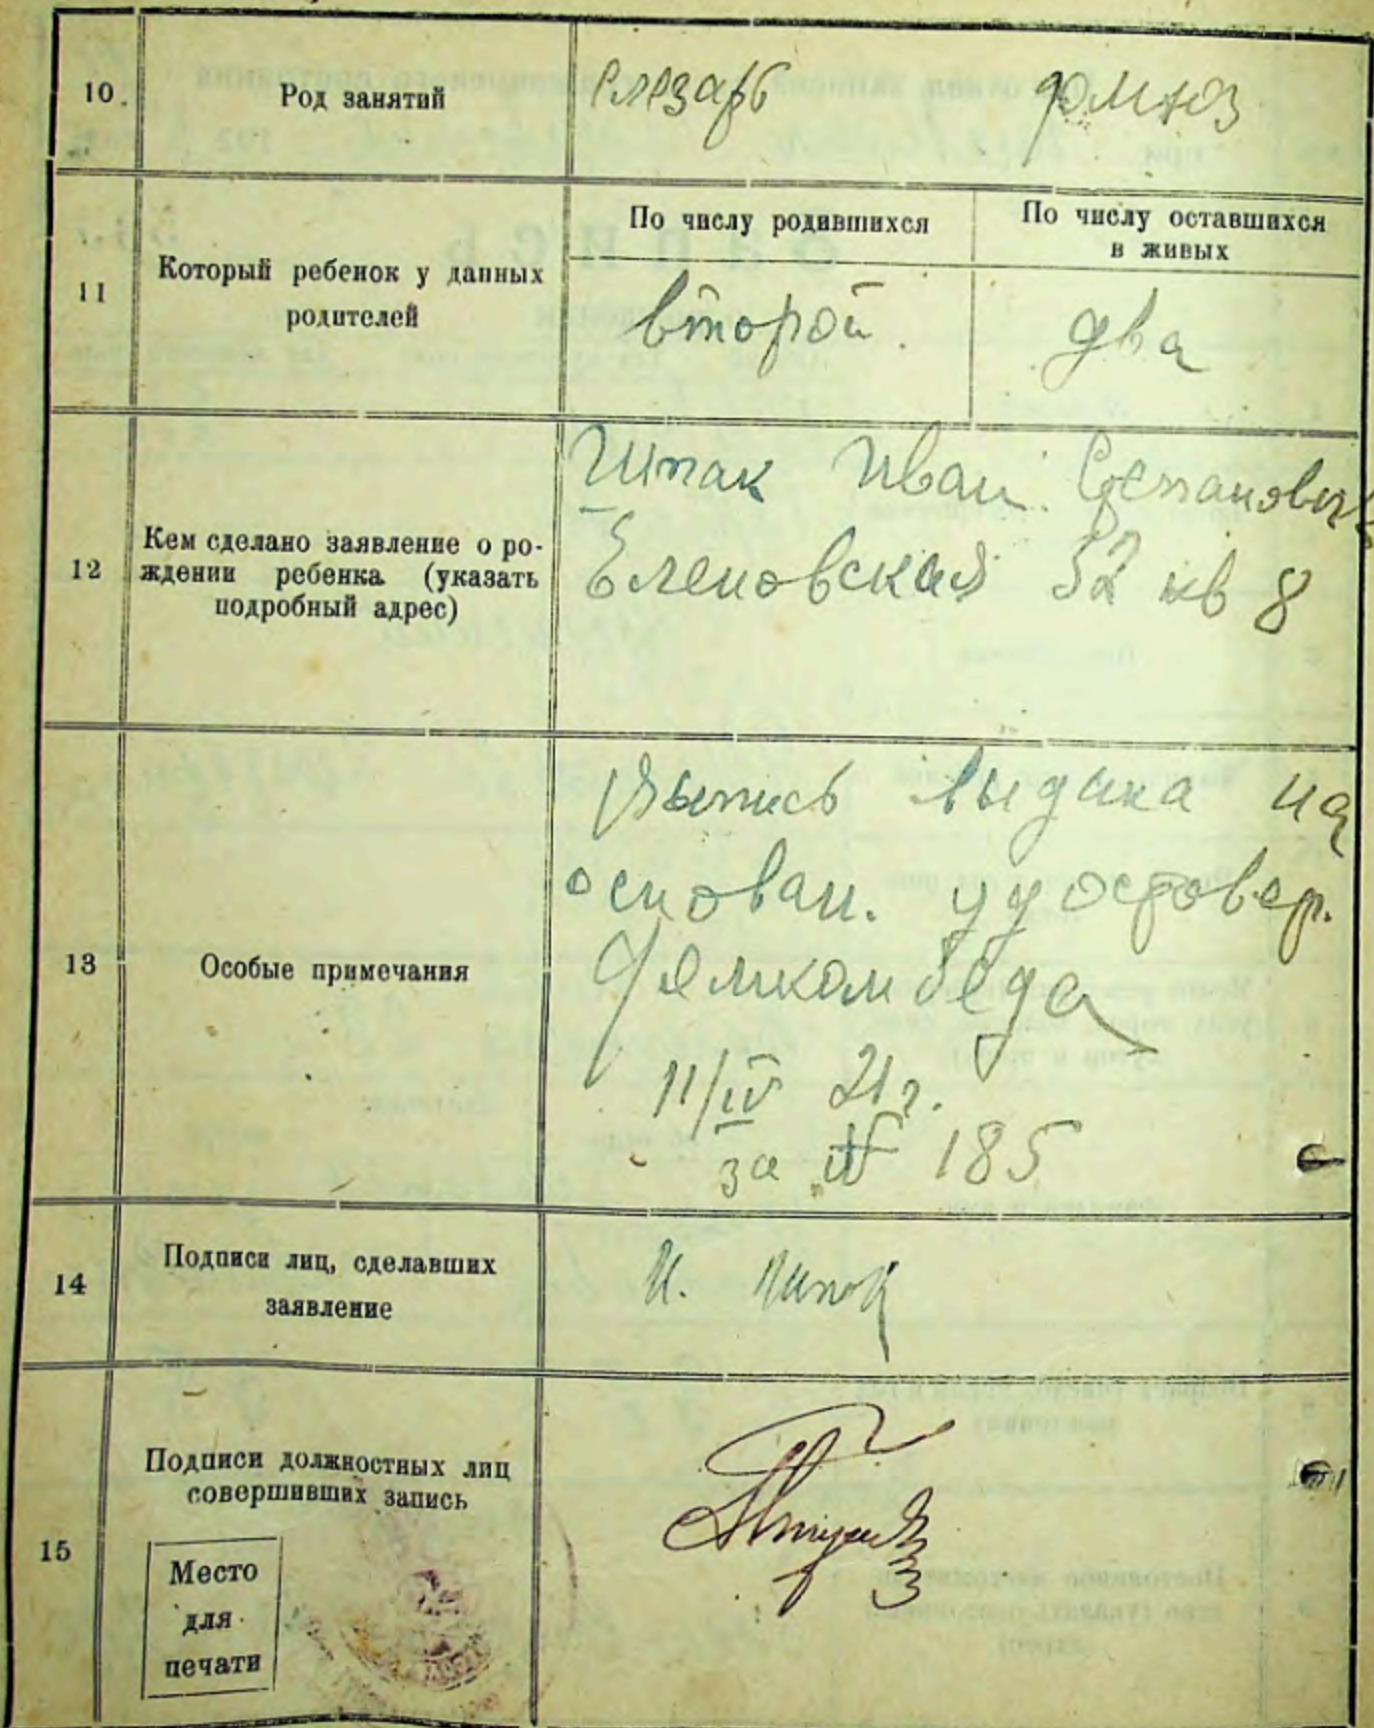 10.
Род занятий
слезарь
домхоз
11
Который ребенок у данных
родителей
По числу родившихся
По числу оставшихся
в живых
второй.
два
12
Кем сделано заявление о ро-
ждении ребенка (указать
подробный адрес)
Шпак Иван Степанович
Еленовская 52 кв 8
13
Особые примечания
Выпись выдана на
основан. удостовер.
Домкомбеда
11/IV 21 г.
за № 185
14
Подписи лиц, сделавших
заявление
И. Шпак
15
Подписи должностных лиц
совершивших запись
Место
для
печати